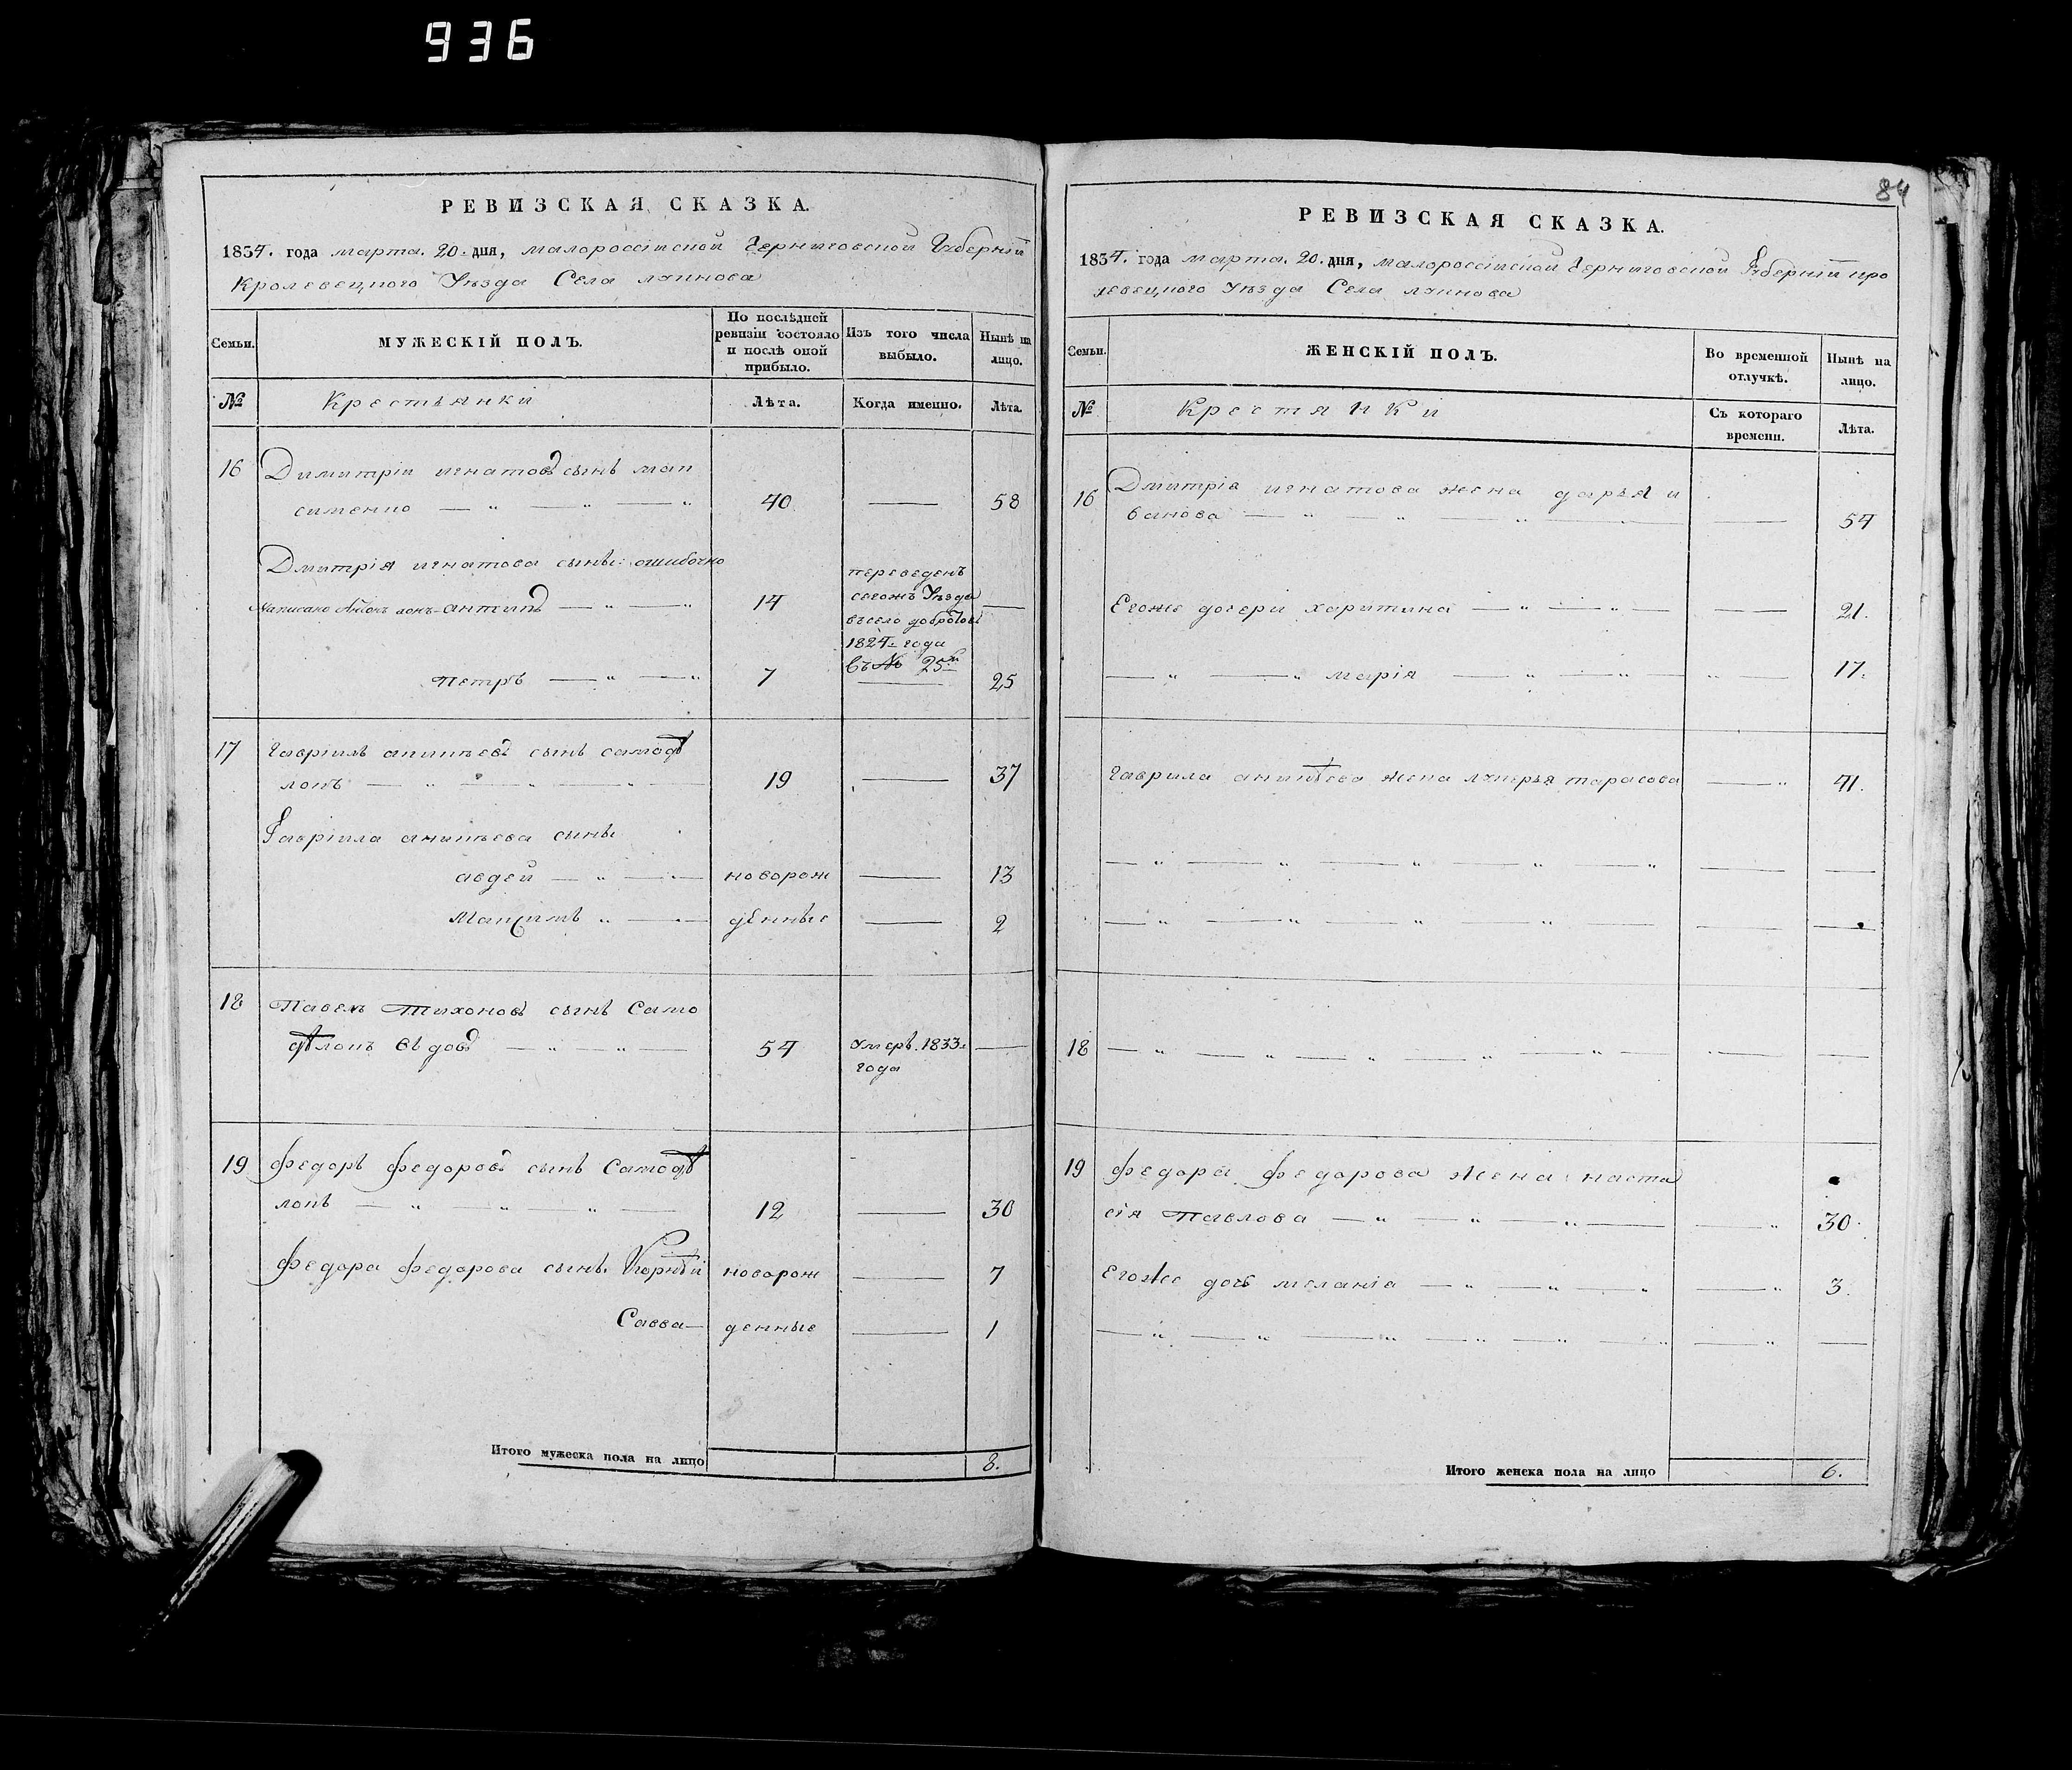 936
РЕВИЗСКАЯ СКАЗКА.
1834. года марта. 20. дня, малороссійской Черниговской Губерніи
Кролевецкого Уѣзда Села лукнова
Семьи.
МУЖЕСКІЙ ПОЛЪ.
По послѣдней ревизіи состояло и послѣ оной прибыло.
Изъ того числа выбыло.
Нынѣ на лицо.
№
Крестьянки
Лѣта.
Когда именно.
Лѣта.
16 Димитріи игнатовъ сынъ мак
сименко — „ — „ — „ 40 — 58
Дмитрія игнатова сынъ: ошибочно
написано антипъ — „ — „ 14 —
переведенъ
сегожъ Уѣзда
въ село
1824. года
Съ № 25
петръ — „ — „ 7 — 25
17 Гавріилъ аникѣевъ сынъ самодѣ
локъ — „ — „ — „ — 19 — 37
Гавріила аникѣева сынъ
авдей — „ — новорож — 13
Максимъ „ — денные — 2
18 Павелъ Тихоновъ сынъ Само
дѣлокъ вдовъ — „ — „ — 54 умеръ. 1833. —
года
19 Федоръ Федоровъ сынъ Самодѣ
локъ — „ — „ — „ — 12 — 30
Федора Федорова сынъ. Корнѣй новорож — 7
Савва — денные — 1
Итого мужеска пола на лицо 8.
84
РЕВИЗСКАЯ СКАЗКА.
1834. года марта. 20. дня, малороссійской Черниговской Губерніи кро
левецкого Уѣзда Села лукнова
Семьи.
ЖЕНСКІЙ ПОЛЪ.
Во временной отлучкѣ.
Нынѣ на лицо.
№
Крестянки
Съ котораго времени.
Лѣта.
16 Дмитрія игнатова жена дарья и
ванова — „ — „ — „ — — 54
Егоже дочери харитина — „ — „ — — 21.
— „ — „ марія — „ — „ — „ — 17.
Гаврила аникѣева жена лукерья тарасова — „ 41.
— „ — „ — „ — „ — „ — —
— „ — „ — „ — „ — — —
18 — „ — „ — „ — „ — „ — — —
19 Федора Федорова жена наста
сія Павлова — „ — „ — „ — — „ 30.
Егоже дочь меланія — „ — „ — „ — „ 3.
— „ — „ — „ — „ — „ — „ — „ —
Итого женска пола на лицо 6.